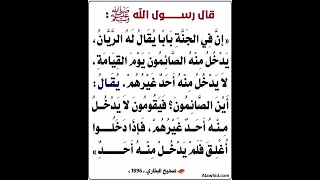 قال رسول الله ﷺ :
«إِنَّ فِي الجَنَّةِ بَابًا يُقَالُ لَهُ الرَّيَّانُ،
يَدْخُلُ مِنْهُ الصَّائِمُونَ يَوْمَ القِيَامَةِ،
لاَ يَدْخُلُ مِنْهُ أَحَدٌ غَيْرُهُمْ، يُقَالُ:
أَيْنَ الصَّائِمُونَ؟ فَيَقُومُونَ لاَ يَدْخُلُ
مِنْهُ أَحَدٌ غَيْرُهُمْ، فَإِذَا دَخَلُوا
أُغْلِقَ فَلَمْ يَدْخُلْ مِنْهُ أَحَدٌ»
صحيح البخاري ، 1896 ،
Atawhid.com